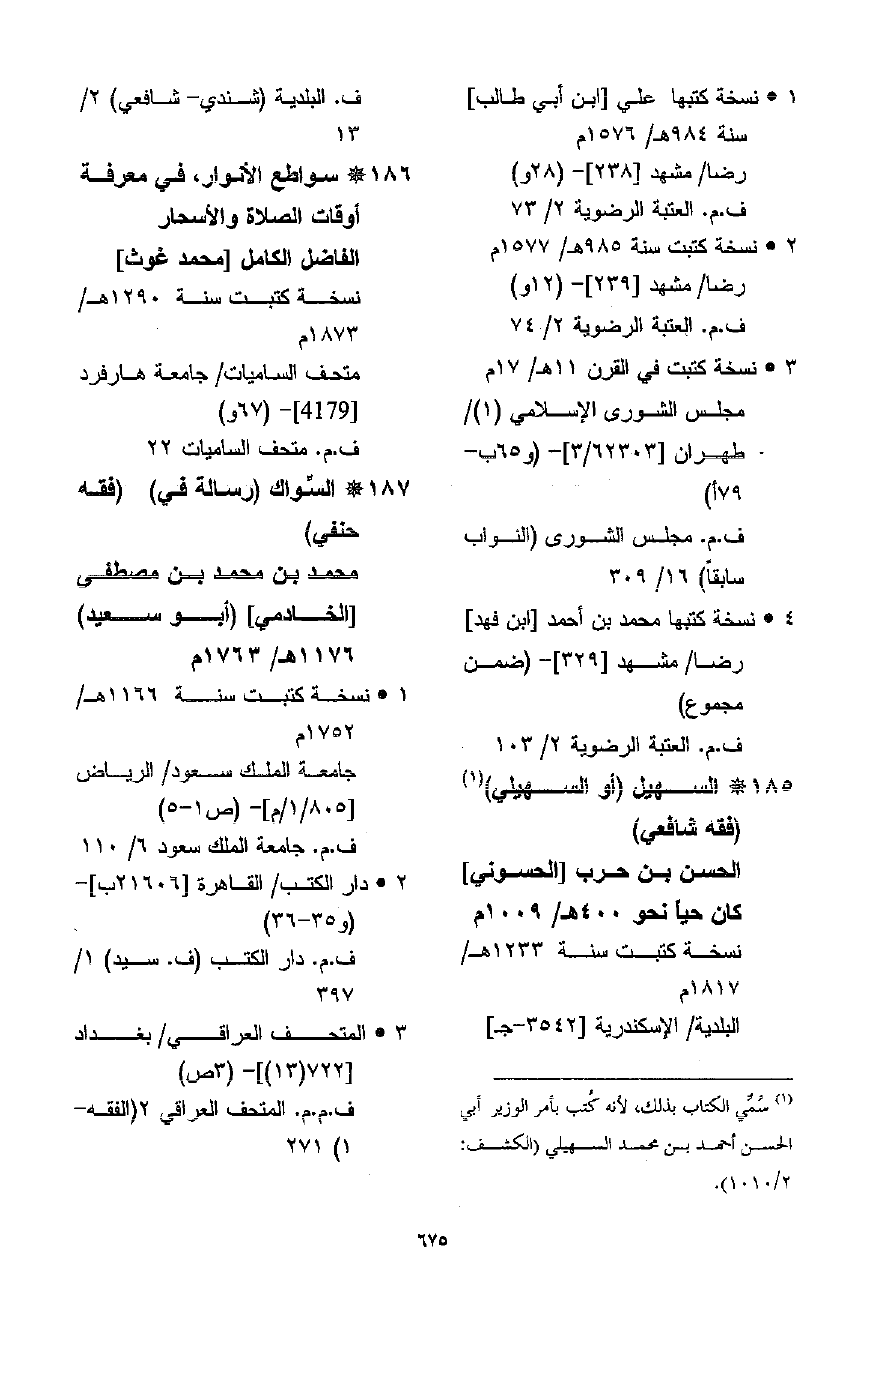 ١ • نسخة كتبها علي [ابن أبي طالب]
سنة ٩٨٤هـ/ ١٥٧٦م
رضا/ مشهد [٢٣٨]- (٢٨و)
ف.م. العتبة الرضوية ٢/ ٧٣
٢ • نسخة كتبت سنة ٩٨٥هـ/ ١٥٧٧م
رضا/ مشهد [٢٣٩]- (١٢و)
ف.م. العتبة الرضوية ٢/ ٧٤
٣ • نسخة كتبت في القرن ١١هـ/ ١٧م
مجلس الشورى الإسلامي (١)/
طهران [٣/٦٢٣٠٣]- (و٦٥ب-
٧٩أ)
ف.م. مجلس الشورى (النواب
سابقاً) ١٦/ ٣٠٩
٤ • نسخة كتبها محمد بن أحمد [ابن فهد]
رضا/ مشهد [٣٢٩]- (ضمن
مجموع)
ف.م. العتبة الرضوية ٢/ ١٠٣
١٨٥ * السهيل (أو السهيلي)(١)
(فقه شافعي)
الحسن بن حرب [الحسوني]
كان حياً نحو ٤٠٠هـ/ ١٠٠٩م
نسخة كتبت سنة ١٢٣٣هـ/
١٨١٧م
البلدية/ الإسكندرية [٣٥٤٢-جـ]
(١) سُمِّي الكتاب بذلك، لأنه كُتب بأمر الوزير أبي
الحسن أحمد بن محمد السهيلي (الكشف:
١٠١٠/٢).
ف. البلدية (شندي- شافعي) ٢/
١٣
١٨٦ * سواطع الأنوار، في معرفة
أوقات الصلاة والأسحار
الفاضل الكامل [محمد غوث]
نسخة كتبت سنة ١٢٩٠هـ/
١٨٧٣م
متحف الساميات/ جامعة هارفرد
[4179]- (٦٧و)
ف.م. متحف الساميات ٢٢
١٨٧ * السّواك (رسالة في) (فقه
حنفي)
محمد بن محمد بن مصطفى
[الخادمي] (أبو سعيد)
١١٧٦هـ/ ١٧٦٣م
١ • نسخة كتبت سنة ١١٦٦هـ/
١٧٥٢م
جامعة الملك سعود/ الرياض
[١/٨٠٥/م]- (ص١-٥)
ف.م. جامعة الملك سعود ٦/ ١١٠
٢ • دار الكتب/ القاهرة [٢١٦٠٦ب]-
(و٣٥-٣٦)
ف.م. دار الكتب (ف. سيد) ١/
٣٩٧
٣ • المتحف العراقي/ بغداد
[٧٢٢(١٣)]- (٣ص)
ف.م.م. المتحف العراقي ٢(الفقه-
١) ٢٧١
٦٧٥